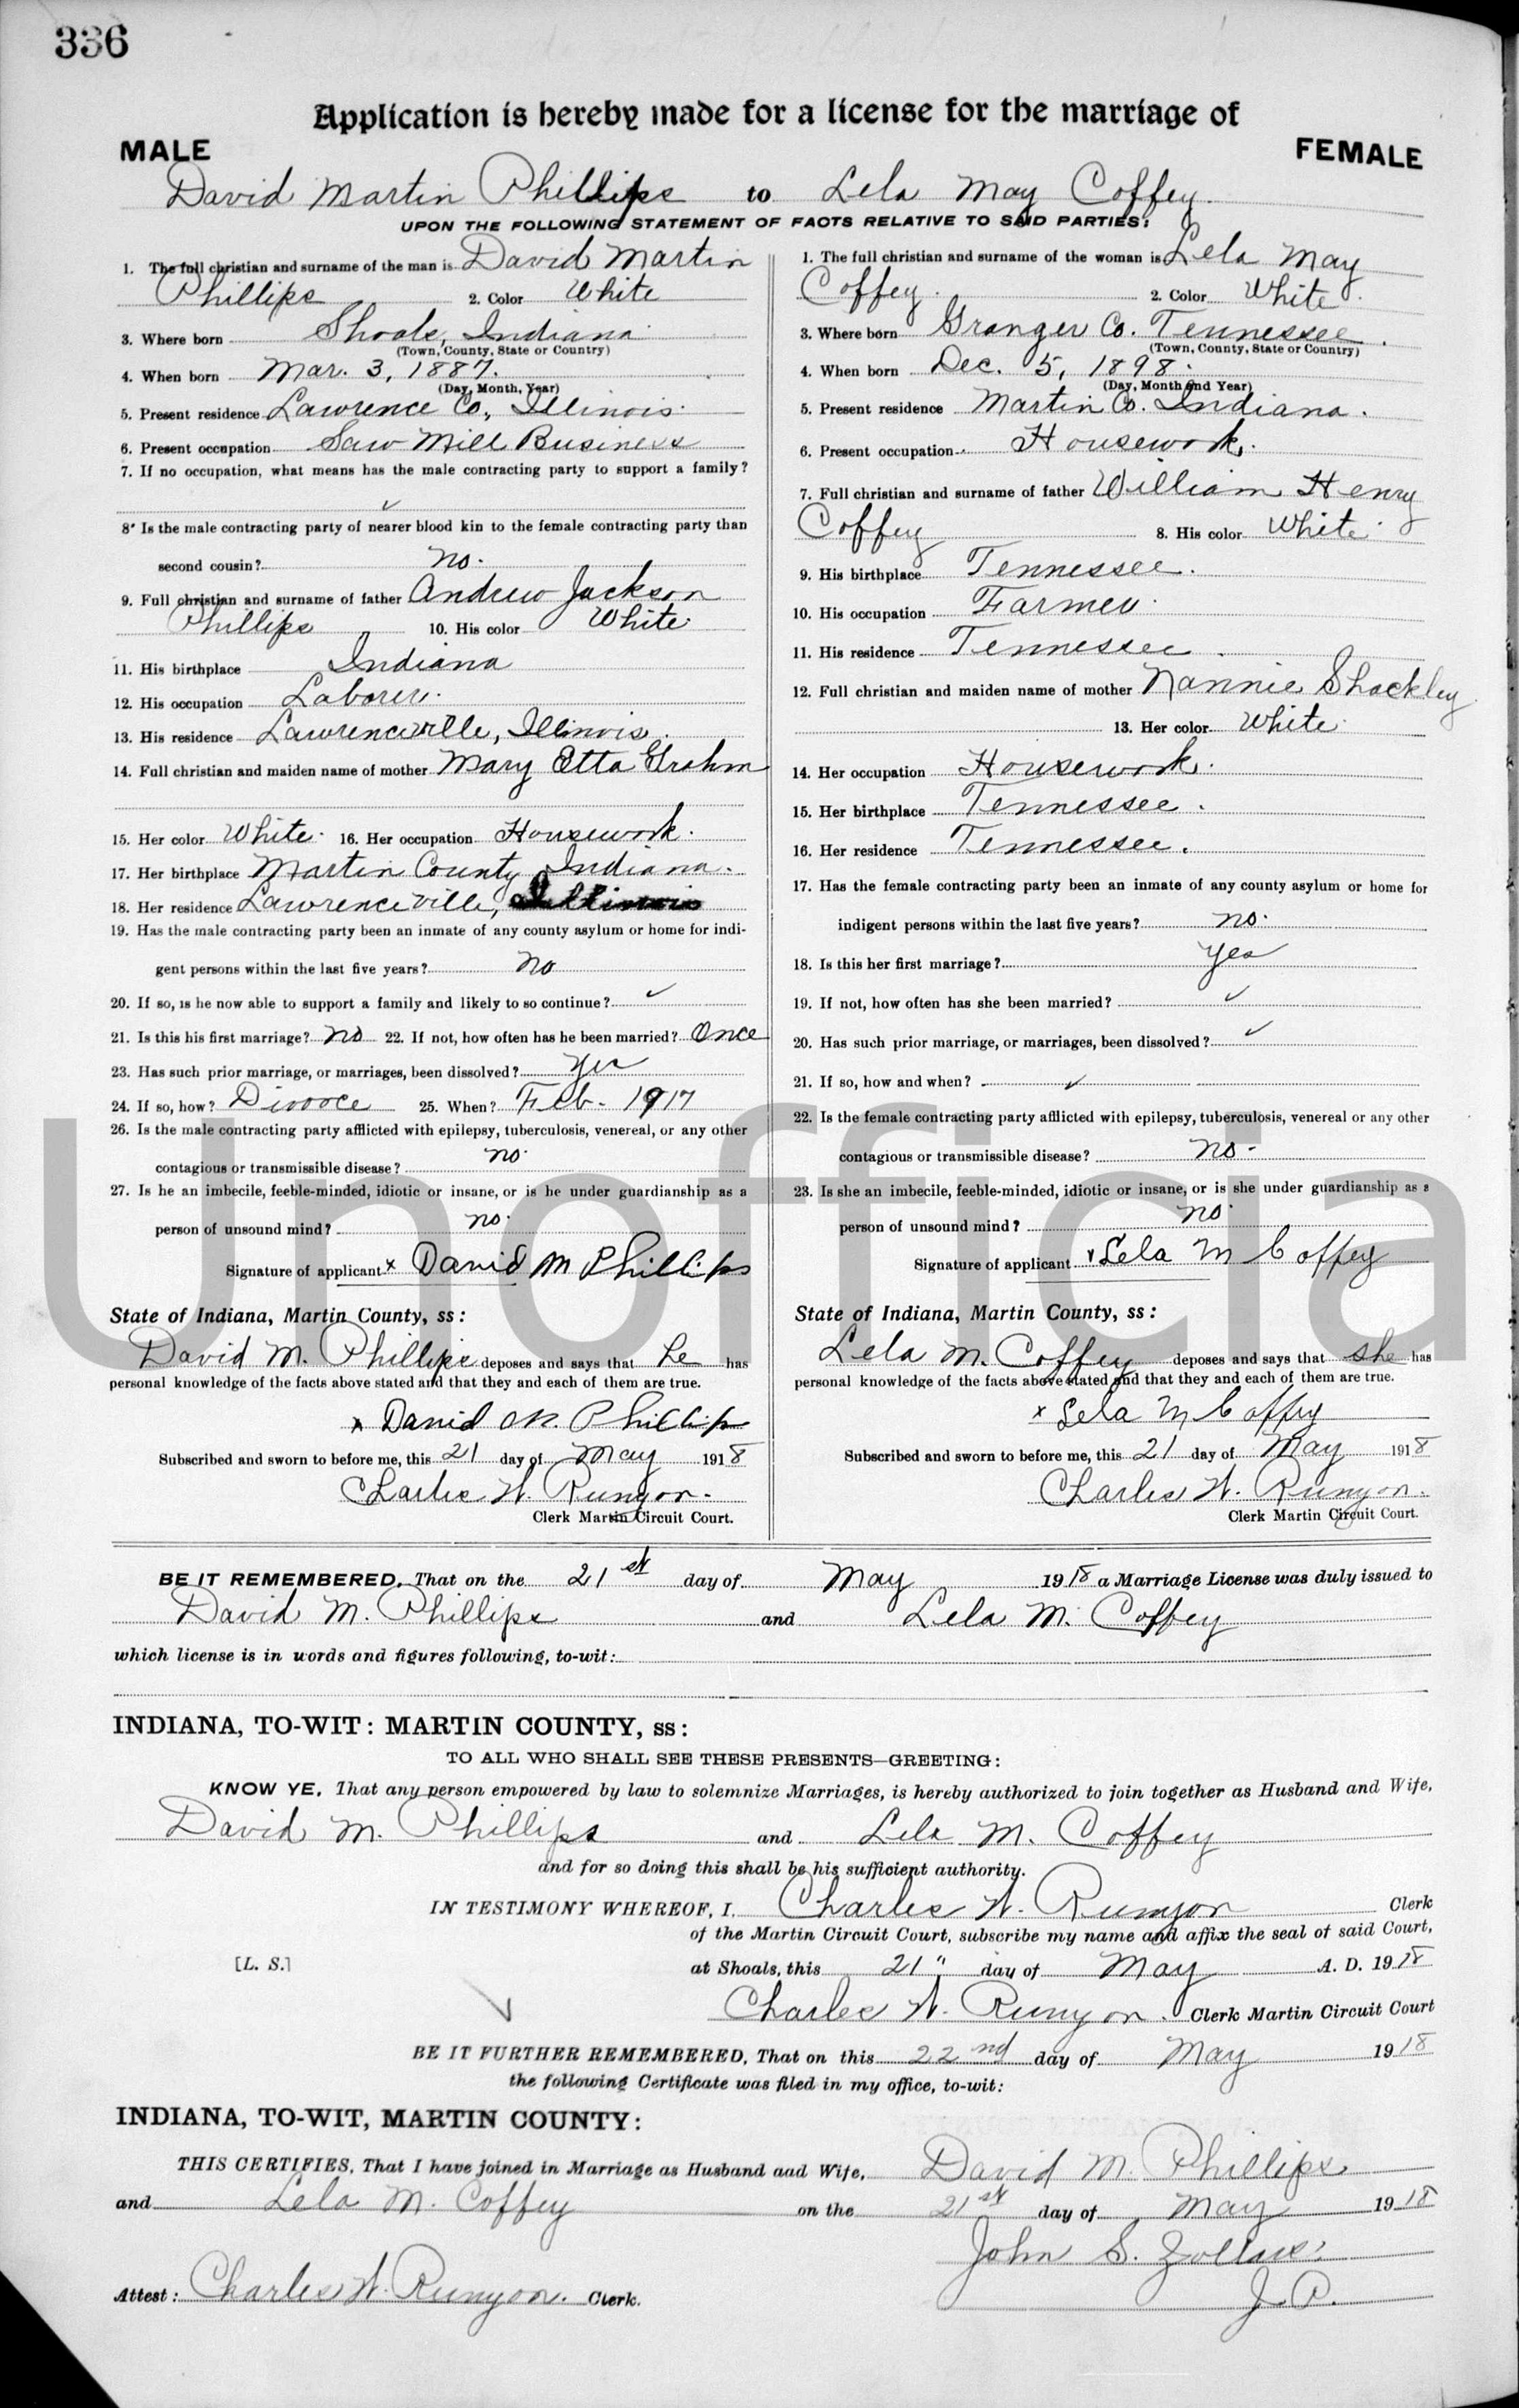 336
Application is hereby made for a license for the marriage of
MALE
FEMALE
David Martin Phillips to Lela May Coffey.
UPON THE FOLLOWING STATEMENT OF FACTS RELATIVE TO SAID PARTIES:
1. The full christian and surname of the man is David Martin
Phillips 2. Color White
3. Where born Shoals, Indiana
(Town, County, State or Country)
4. When born Mar. 3, 1887.
(Day, Month, Year)
5. Present residence Lawrence Co., Illinois.
6. Present occupation Saw Mill Business
7. If no occupation, what means has the male contracting party to support a family?
✓
8. Is the male contracting party of nearer blood kin to the female contracting party than
second cousin? no.
9. Full christian and surname of father Andrew Jackson
Phillips 10. His color White
11. His birthplace Indiana
12. His occupation Laborer.
13. His residence Lawrenceville, Illinois.
14. Full christian and maiden name of mother Mary Etta Grahm
15. Her color White. 16. Her occupation Housework.
17. Her birthplace Martin County, Indiana.
18. Her residence Lawrenceville, Illinois
19. Has the male contracting party been an inmate of any county asylum or home for indi-
gent persons within the last five years? no
20. If so, is he now able to support a family and likely to so continue? ✓
21. Is this his first marriage? no 22. If not, how often has he been married? Once
23. Has such prior marriage, or marriages, been dissolved? Yes
24. If so, how? Divorce 25. When? Feb. 1917
26. Is the male contracting party afflicted with epilepsy, tuberculosis, venereal, or any other
contagious or transmissible disease? no.
27. Is he an imbecile, feeble-minded, idiotic or insane, or is he under guardianship as a
person of unsound mind? no.
Signature of applicant x David M Phillips
State of Indiana, Martin County, ss:
David M. Phillips deposes and says that he has
personal knowledge of the facts above stated and that they and each of them are true.
x David M. Phillips
Subscribed and sworn to before me, this 21 day of May 1918
Charles W. Runyon.
Clerk Martin Circuit Court.
1. The full christian and surname of the woman is Lela May
Coffey. 2. Color White.
3. Where born Granger Co. Tennessee.
(Town, County, State or Country)
4. When born Dec. 5, 1898.
(Day, Month and Year)
5. Present residence Martin Co. Indiana.
6. Present occupation Housework.
7. Full christian and surname of father William Henry
Coffey 8. His color White.
9. His birthplace Tennessee.
10. His occupation Farmer.
11. His residence Tennessee.
12. Full christian and maiden name of mother Nannie Shockley
13. Her color White.
14. Her occupation Housework.
15. Her birthplace Tennessee.
16. Her residence Tennessee.
17. Has the female contracting party been an inmate of any county asylum or home for
indigent persons within the last five years? no.
18. Is this her first marriage? Yes
19. If not, how often has she been married? ✓
20. Has such prior marriage, or marriages, been dissolved? ✓
21. If so, how and when? ✓
22. Is the female contracting party afflicted with epilepsy, tuberculosis, venereal or any other
contagious or transmissible disease? no.
23. Is she an imbecile, feeble-minded, idiotic or insane, or is she under guardianship as a
person of unsound mind? no.
Signature of applicant x Lela M Coffey
State of Indiana, Martin County, ss:
Lela M. Coffey deposes and says that she has
personal knowledge of the facts above stated and that they and each of them are true.
x Lela M Coffey
Subscribed and sworn to before me, this 21 day of May 1918
Charles W. Runyon.
Clerk Martin Circuit Court.
Unofficia
BE IT REMEMBERED, That on the 21st day of May 1918 a Marriage License was duly issued to
David M. Phillips and Lela M. Coffey
which license is in words and figures following, to-wit:
INDIANA, TO-WIT: MARTIN COUNTY, ss:
TO ALL WHO SHALL SEE THESE PRESENTS—GREETING:
KNOW YE, That any person empowered by law to solemnize Marriages, is hereby authorized to join together as Husband and Wife,
David M. Phillips and Lela M. Coffey
and for so doing this shall be his sufficient authority.
IN TESTIMONY WHEREOF, I, Charles W. Runyon Clerk
of the Martin Circuit Court, subscribe my name and affix the seal of said Court,
[L. S.] at Shoals, this 21" day of May A. D. 1918
Charles W. Runyon. Clerk Martin Circuit Court
BE IT FURTHER REMEMBERED, That on this 22nd day of May 1918
the following Certificate was filed in my office, to-wit:
INDIANA, TO-WIT, MARTIN COUNTY:
THIS CERTIFIES, That I have joined in Marriage as Husband aad Wife, David M. Phillips
and Lela M. Coffey on the 21st day of May 1918
John S. Zollars.
J. P.
Attest: Charles W. Runyon. Clerk.